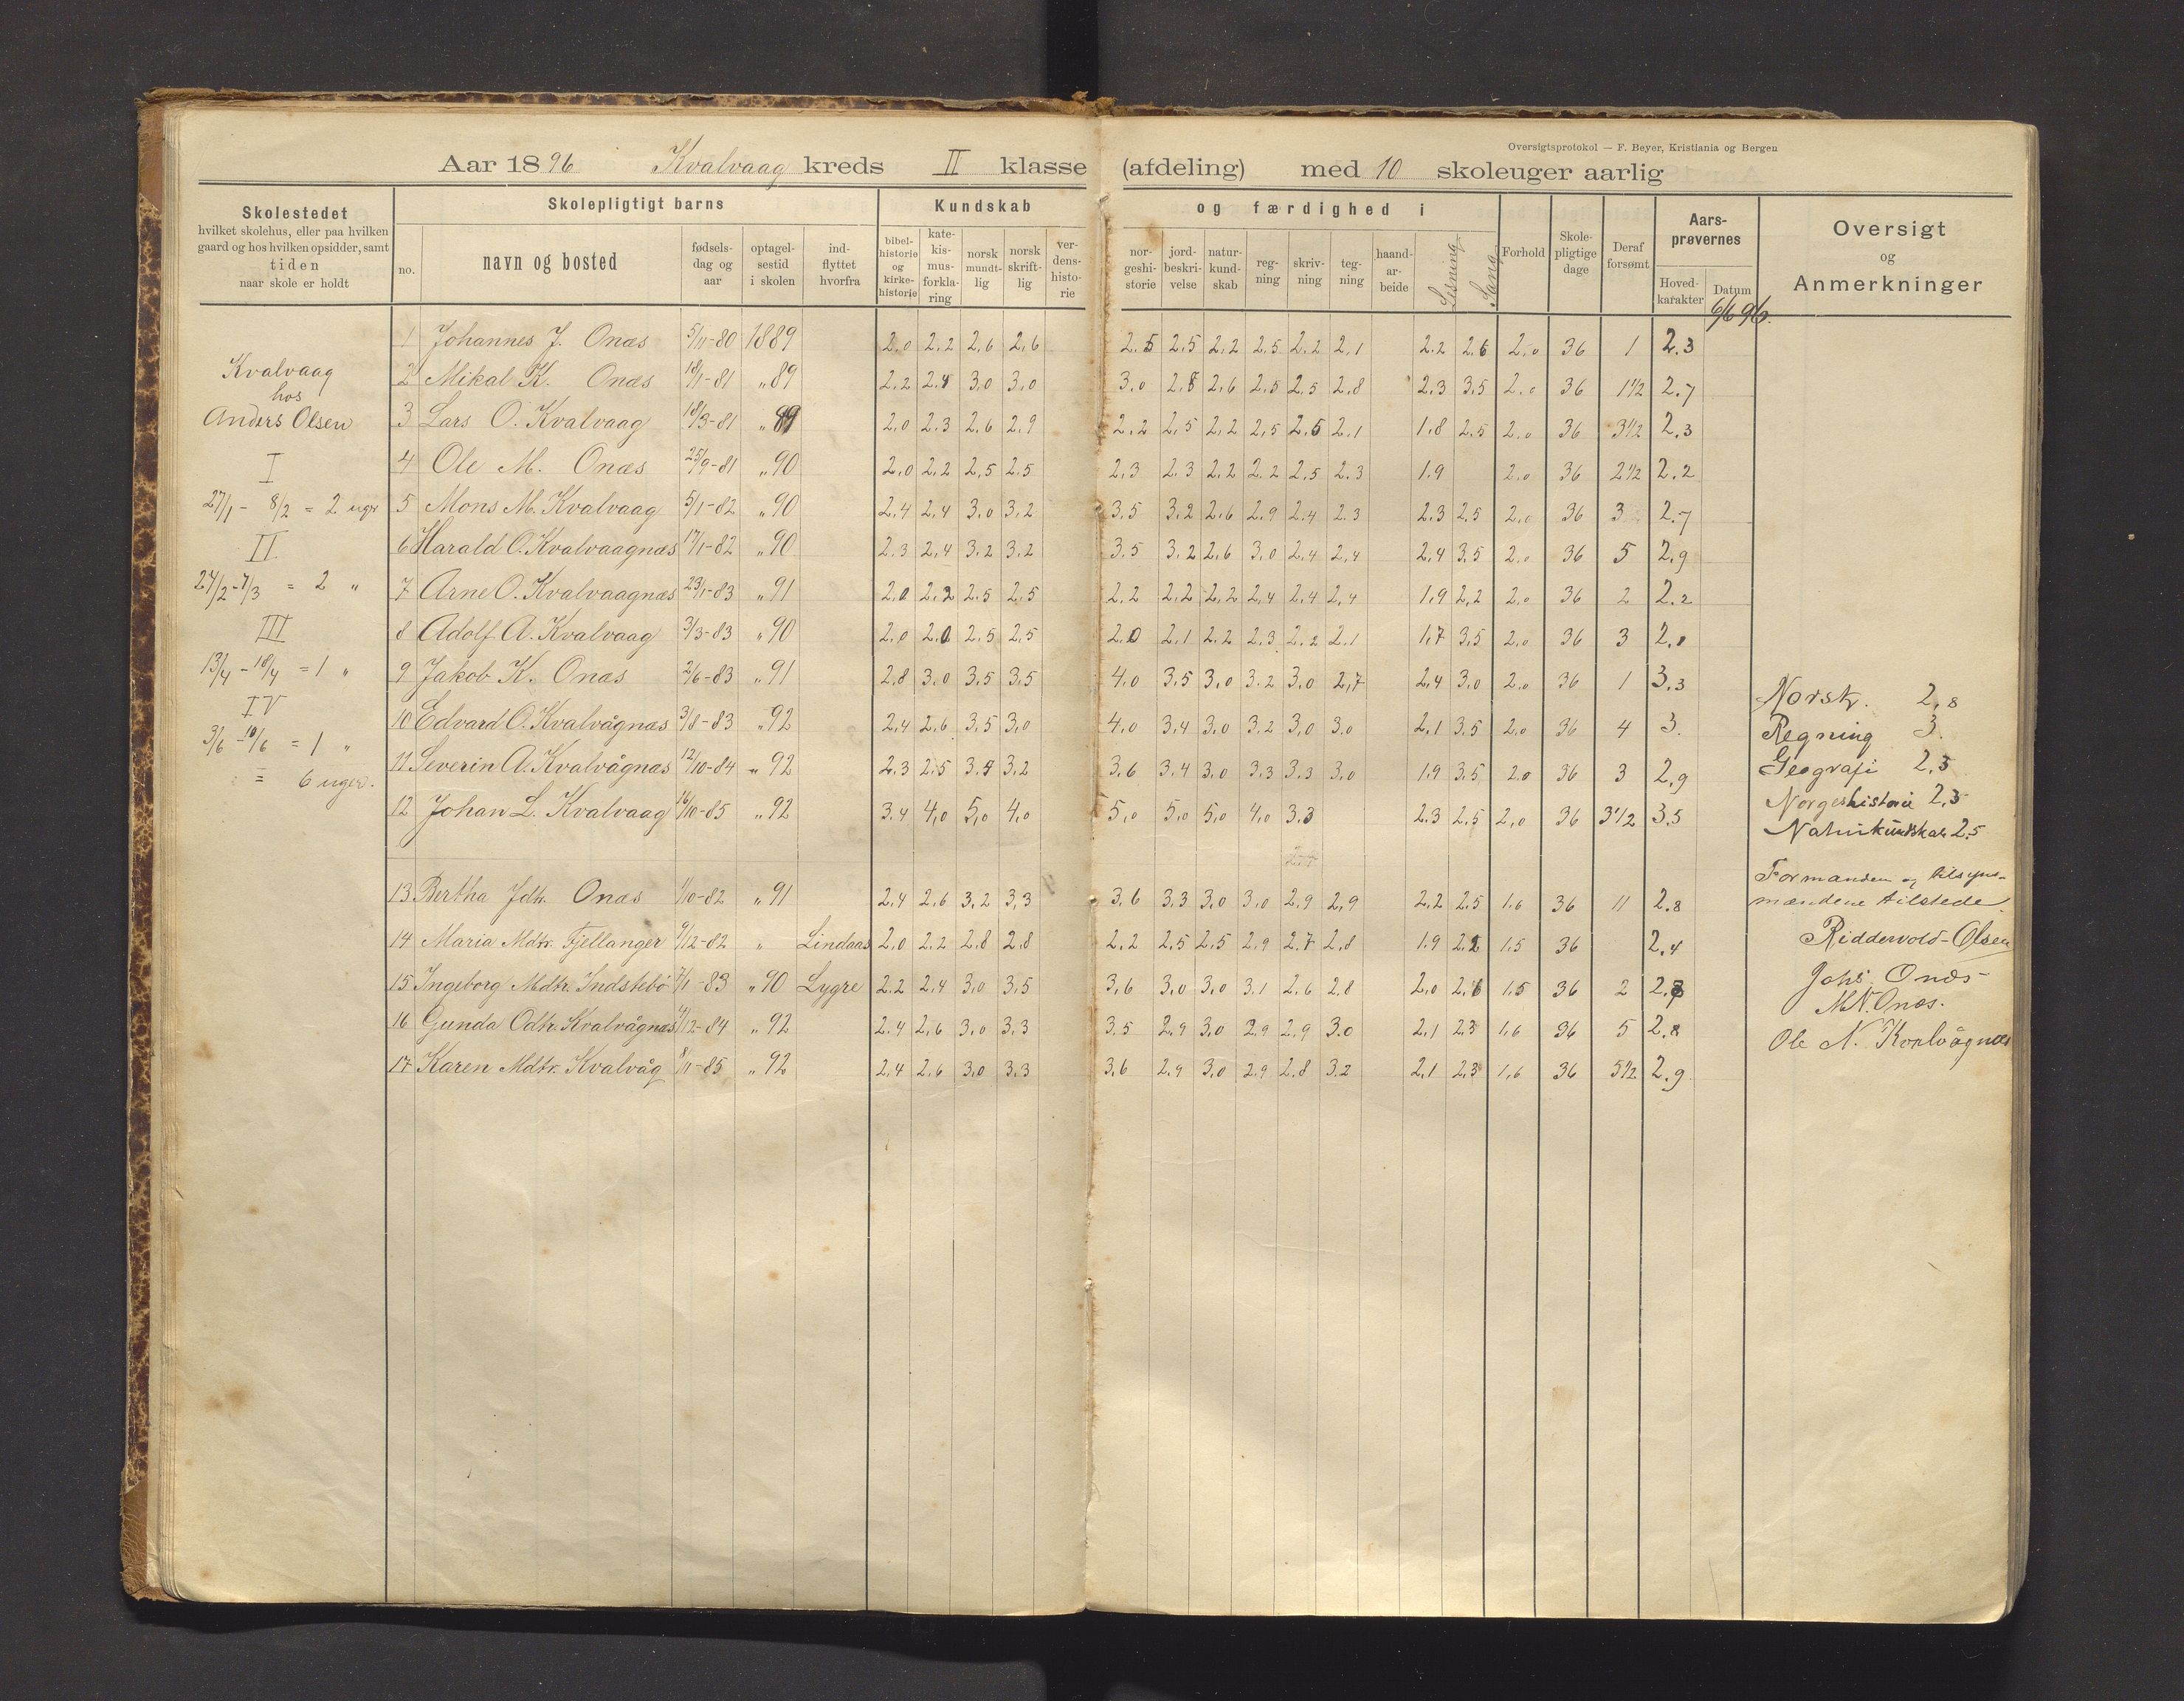 Oversigtsprotokol — F. Beyer, Kristiania og Bergen
Aar 1896 Kvalvaag kreds II klasse (afdeling) med 10 skoleuger aarlig
Skolestedet
hvilket skolehus, eller paa hvilken
gaard og hos hvilken opsidder, samt
tiden
naar skole er holdt
Skolepligtigt barns
no.
navn og bosted
fødsels-
dag og
aar
optagel-
sestid
i skolen
ind-
flyttet
hvorfra
Kundskab og færdighed i
bibel-
historie
og
kirke-
historie
kate-
kis-
mus-
forkla-
ring
norsk
mundt-
lig
norsk
skrift-
lig
ver-
dens-
histo-
rie
nor-
geshi-
storie
jord-
beskri-
velse
natur-
kund-
skab
reg-
ning
skriv-
ning
teg-
ning
haand-
ar-
beide
Læsning
Sang
Forhold
Skole-
pligtige
dage
Deraf
forsømt
Aars-
prøvernes
Hoved-
karakter
Datum
6/6 96.
Oversigt
og
Anmerkninger
Kvalvaag
hos
Anders Olsen
I
27/1 - 8/2 = 2 uger
II.
24/2 - 7/3 = 2 "
III
13/4 - 18/4 = 1 "
IV
3/6 - 10/6 = 1 "
= 6 uger.
1 Johannes J. Onæs 5/11-80 1889 2,0 2,2 2,6 2,6 2,5 2,5 2,2 2,5 2,2 2,1 2,2 2,6 2,0 36 1 2.3
2 Mikal K. Onæs 18/1-81 " 89 2,2 2,4 3,0 3,0 3,0 2,8 2,6 2,5 2,5 2,8 2,3 3,5 2,0 36 1 1/2 2.7
3 Lars O. Kvalvaag 18/3-81 " 89 2,0 2,3 2,6 2,9 2,2 2,5 2,2 2,5 2,5 2,1 1,8 2,5 2,0 36 3 1/2 2.3
4 Ole M. Onæs 25/9-81 " 90 2,0 2,2 2,5 2,5 2,3 2,3 2,2 2,2 2,5 2,3 1,9 2,0 36 2 1/2 2.2
5 Mons M. Kvalvaag 5/1-82 " 90 2,4 2,4 3,0 3,2 3,5 3,2 2,6 2,9 2,4 2,3 2,3 2,5 2,0 36 3 2.7
6 Harald O. Kvalvaagnæs 17/1-82 " 90 2,3 2,4 3,2 3,2 3,5 3,2 2,6 3,0 2,4 2,4 2,4 3,5 2,0 36 5 2.9
7 Arne O. Kvalvaagnæs 23/1-83 " 91 2,0 2,2 2,5 2,5 2,2 2,2 2,2 2,4 2,4 2,4 1,9 2,2 2,0 36 2 2.2
8 Adolf A. Kvalvaag 3/3-83 " 90 2,0 2,0 2,5 2,5 2,0 2,1 2,2 2,3 2,2 2,1 1,7 3,5 2,0 36 3 2.1
9 Jakob K. Onæs 2/6-83 " 91 2,8 3,0 3,5 3,5 4,0 3,5 3,0 3,2 3,0 2,7 2,4 3,0 2,0 36 1 3.3
10 Edvard O. Kvalvågnæs 3/8-83 " 92 2,4 2,6 3,5 3,0 4,0 3,4 3,0 3,2 3,0 3,0 2,1 3,5 2,0 36 4 3.
11 Severin A. Kvalvågnæs 12/10-84 " 92 2,3 2,5 3,5 3,2 3,6 3,4 3,0 3,3 3,3 3,0 1,9 3,5 2,0 36 3 2,9
12 Johan L. Kvalvaag 16/10-85 " 92 3,4 4,0 5,0 4,0 5,0 5,0 5,0 4,0 3,3 2,3 2,5 2,0 36 3 1/2 3.5
13 Bertha Jdtr. Onæs 1/10-82 " 91 2,4 2,6 3,2 3,3 3,6 3,3 3,0 3,0 2,9 2,9 2,2 2,5 1,6 36 11 2.8
14 Maria Mdtr. Fjellanger 9/12-82 " Lindaas 2,0 2,2 2,8 2,8 2,2 2,5 2,5 2,9 2,7 2,8 1,9 2,2 1,5 36 2.4
15 Ingeborg Mdtr. Indstebö 7/1-83 " 90 Lygre 2,2 2,4 3,0 3,5 3,6 3,0 3,0 3,1 2,6 2,8 2,0 2,6 1,5 36 2
16 Gunda Odtr. Kvalvågnæs 4/12-84 " 92 2,4 2,6 3,0 3,3 3,5 2,9 3,0 2,9 2,9 3,0 2,1 2,3 1,6 36 5 2.8
17 Karen Mdtr. Kvalvåg 8/11-85 " 92 2,4 2,6 3,0 3,3 3,6 2,9 3,0 2,9 2,8 3,2 2,1 2,3 1,6 36 5 1/2 2.9
Norsk. 2,8
Regning 3.
Geografi 2,5
Norgeshistorie 2,5
Naturkundskab 2,5
Formanden og tilsyns-
mændene tilstede.
Riddervold-Olsen
Johs. Onæs
M.N. Onæs.
Ole N. Kvalvågnæs